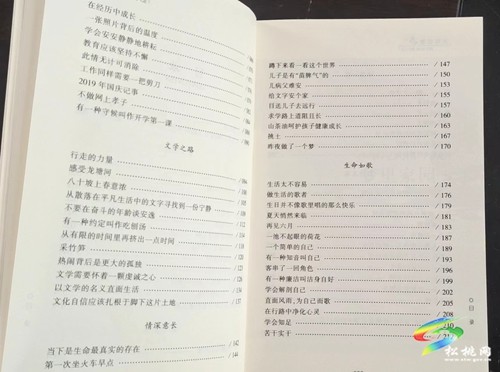 在经历中成长
一张照片背后的温度
学会安安静静地耕耘
教育应该坚持不懈
此情无计可消除
工作同样需要一把剪刀
2019年国庆记事
不做网上孝子
有一种守候叫作开学第一课
文学之路
行走的力量
感受龙塘河
八十坡上春意浓
从散落在平凡生活中的文字寻找到一份宁静
不要在奋斗的年龄谈安逸
有一种约定叫作吃刨汤
从有限的时间里再挤出一点时间
采竹笋
热闹背后是更大的孤独
文学需要怀着一颗虔诚之心
以文学的名义直面生活
文化自信应该扎根于脚下这片土地
情深意长
当下是生命最真实的存在 /142
第一次坐火车早点 /144
蹲下来看一看这个世界 /147
儿子是有“苗脾气”的 /150
儿病父难安 /153
给文字安个家 /155
目送儿子去远行 /157
求学路上道阻且长 /160
山茶油呵护孩子健康成长 /163
挑土 /165
昨夜做了一个梦 /170
生命如歌
生活太不容易 /174
做生活的歌者 /176
生日并不像歌里唱的那么快乐 /179
夏天悄然来临 /181
再见六月 /183
一池不起眼的荷花 /189
一个简单的自己 /191
有一种知音叫自己 /193
客串了一回角色 /196
有一种廉洁叫洁身自好 /199
学会解剖自己 /202
直面风雨,为自己而歌 /205
在行路中净化心灵 /208
学会知足 /210
苦干实干
目录
松桃网